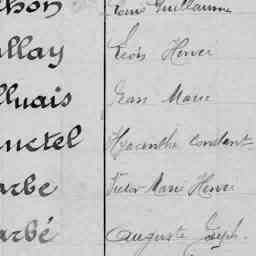 Louis Guillaume
llay Léon Henri
lluais Jean Marie
uctel Hyacinthe Constant
arbe Victor Marie Henri
arbé Auguste Joseph